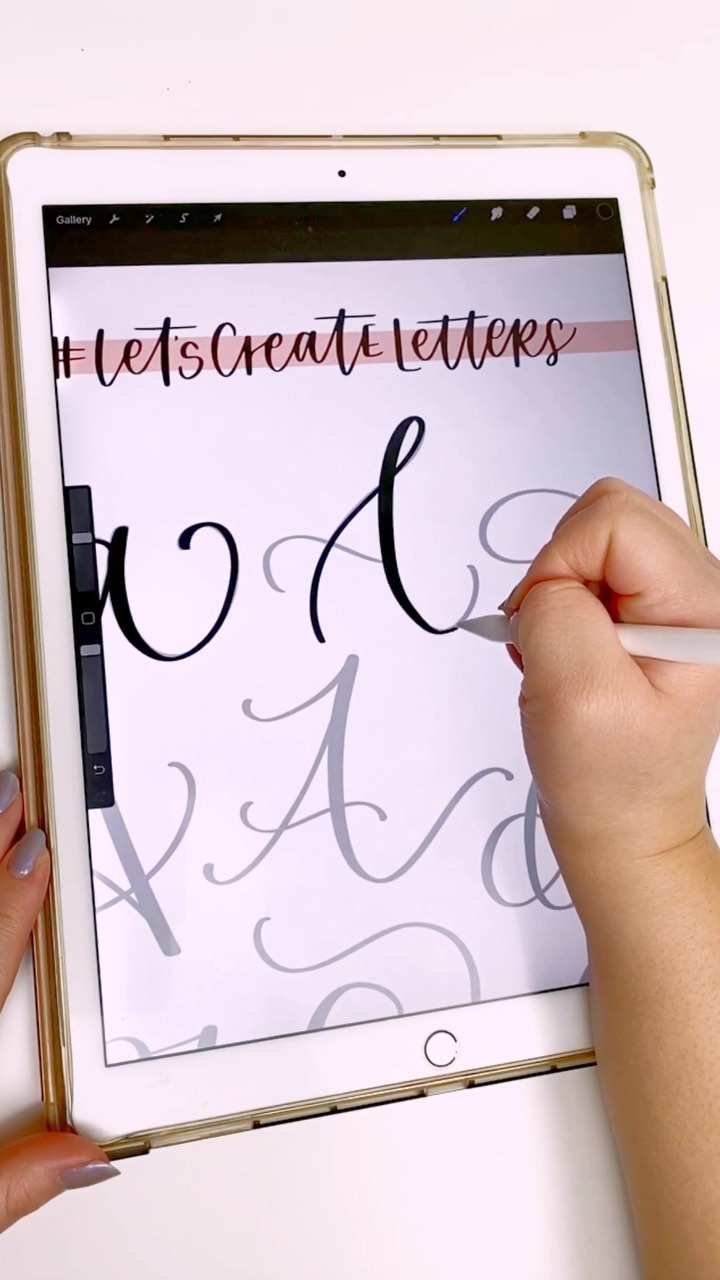 Gallery
#Let's Create Letters
a A
A